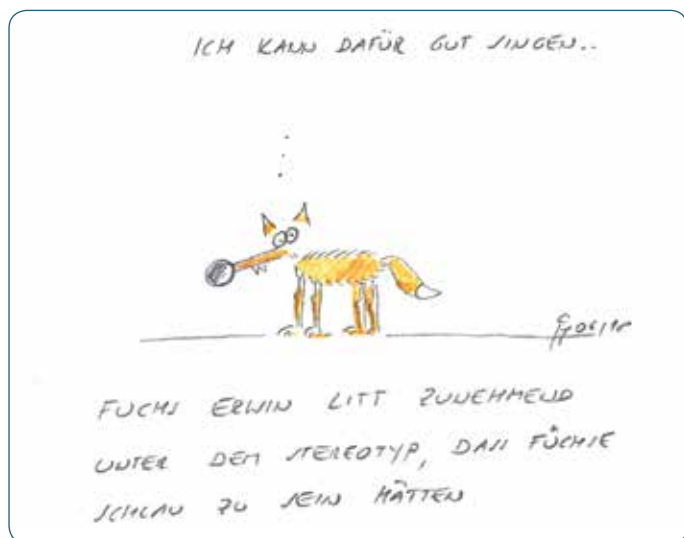 ICH KANN DAFÜR GUT SINGEN..
FUCHS ERWIN LITT ZUNEHMEND
UNTER DEM STEREOTYP, DASS FÜCHSE
SCHLAU ZU SEIN HÄTTEN